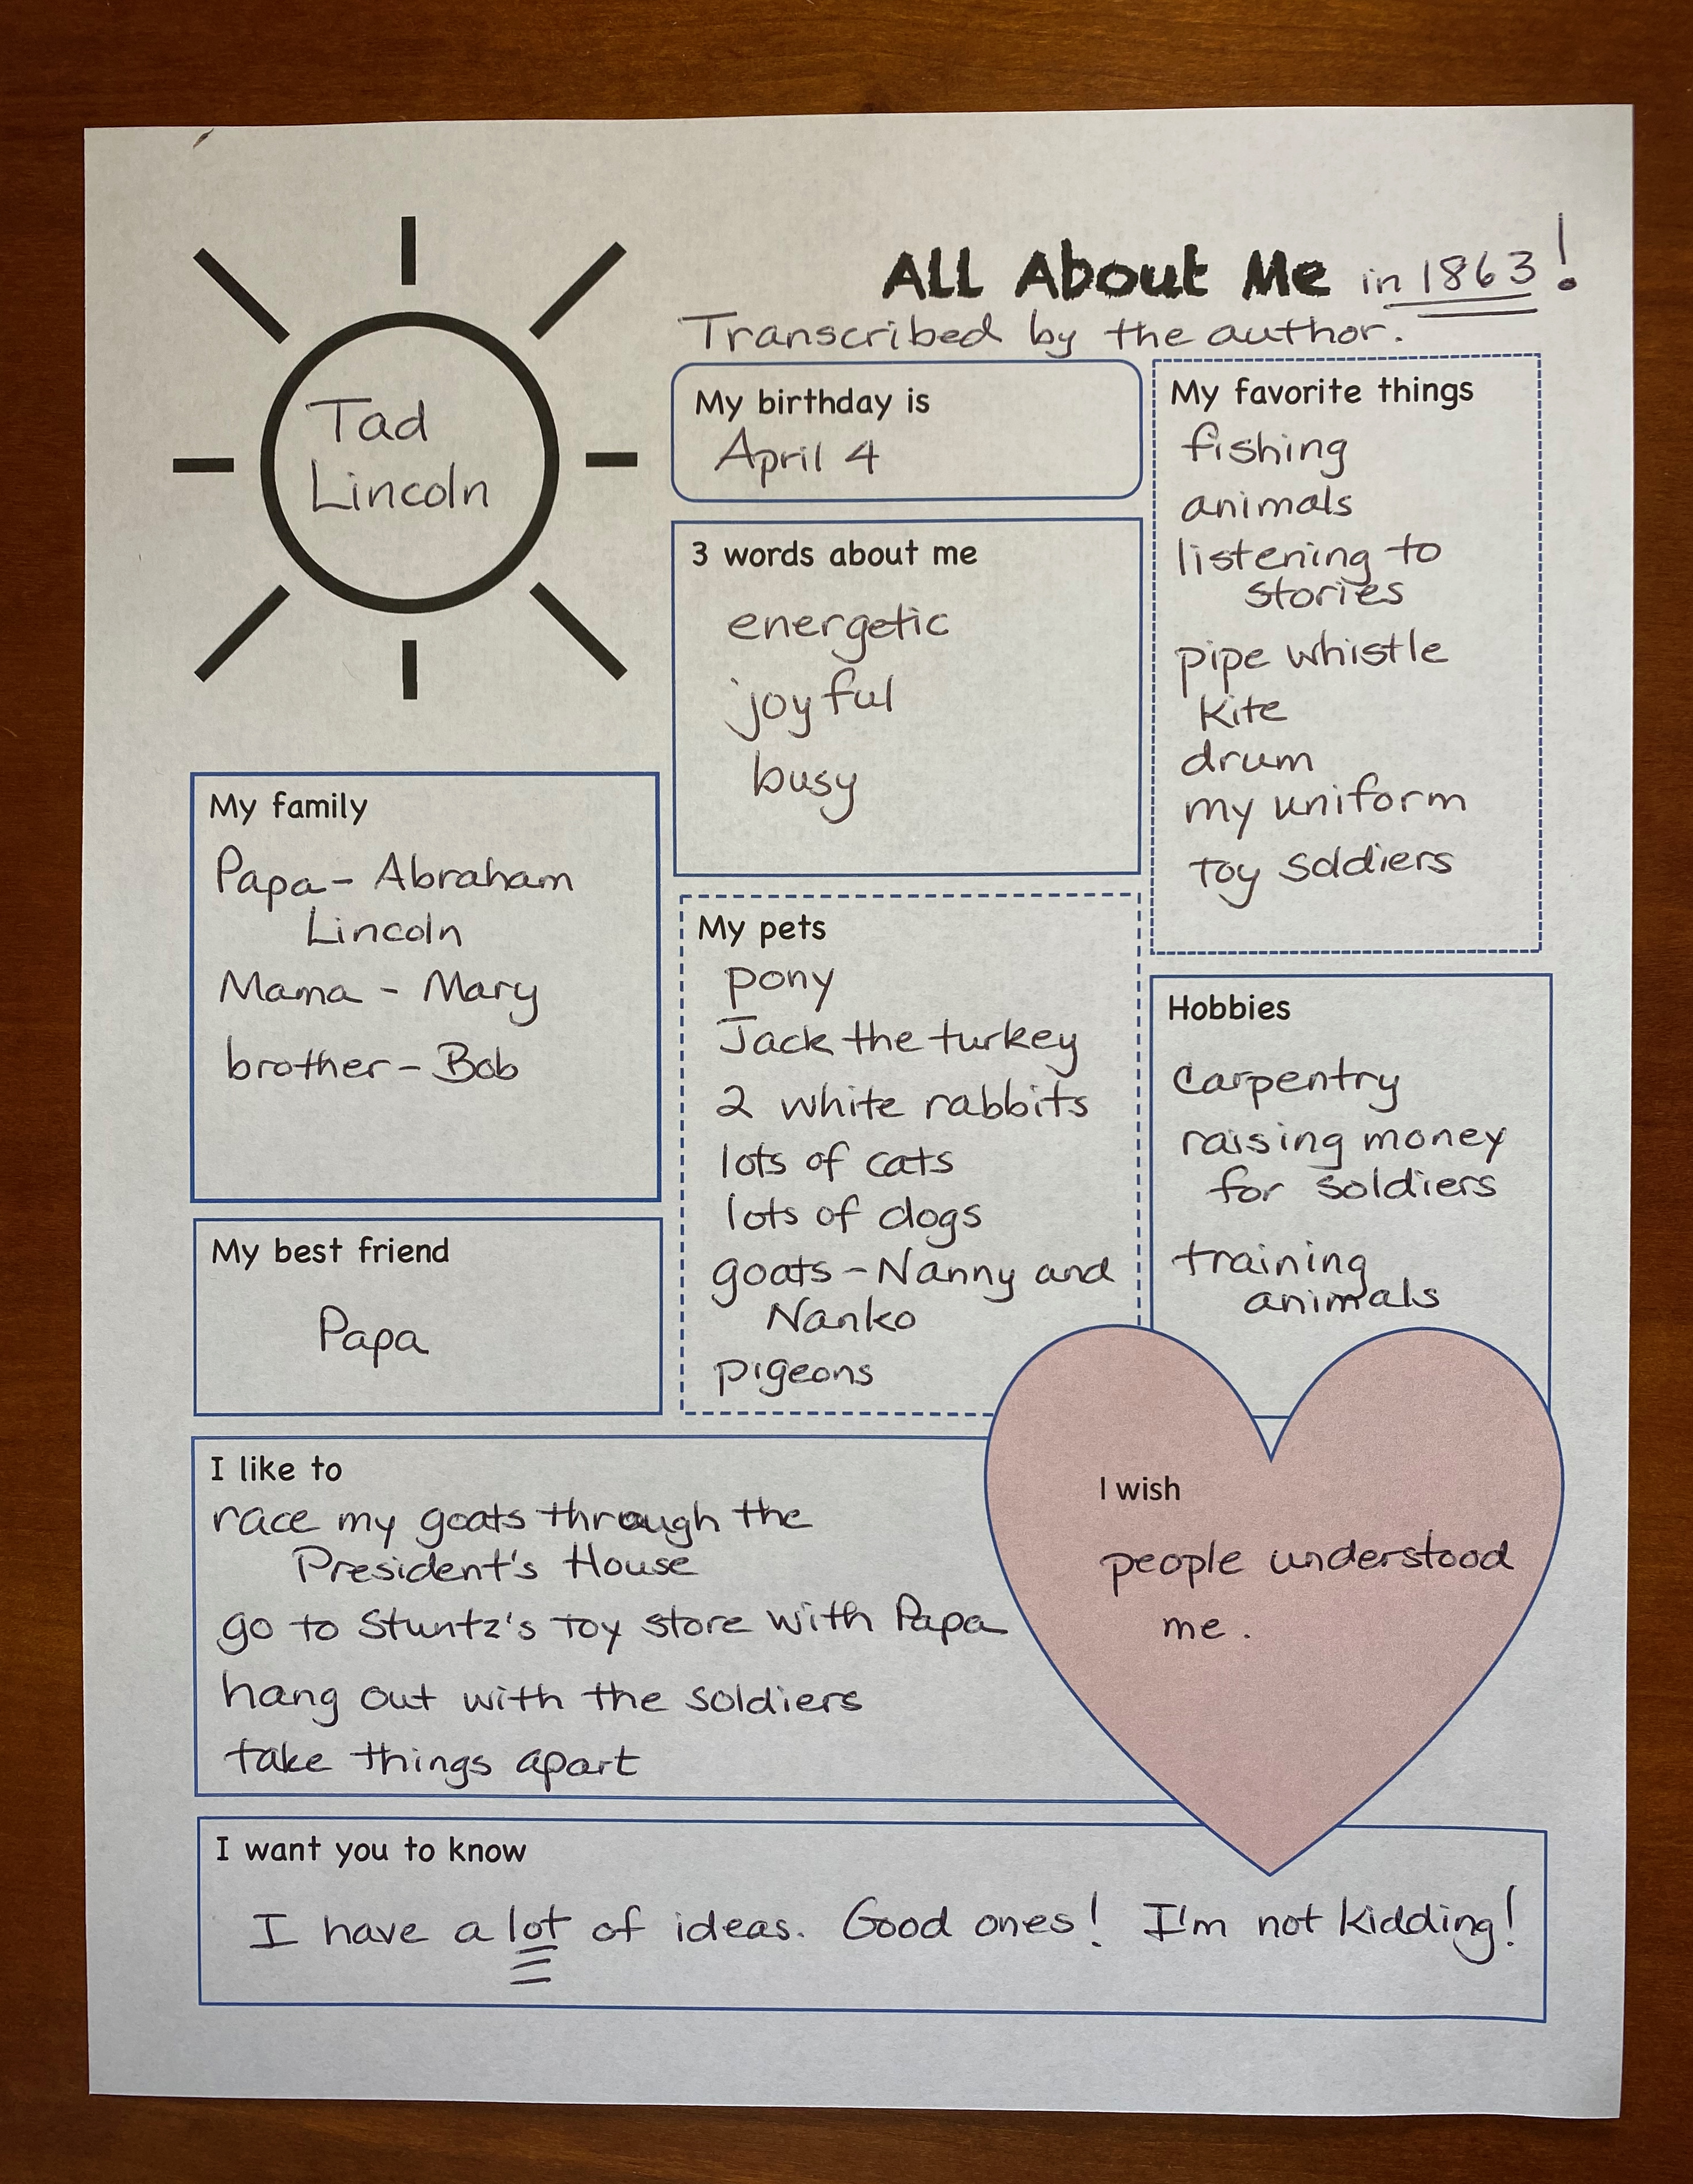 All About Me in 1863!
Transcribed by the author.
Tad
Lincoln
My birthday is
April 4
3 words about me
energetic
joyful
busy
My favorite things
fishing
animals
listening to
stories
pipe whistle
kite
drum
my uniform
toy soldiers
My family
Papa - Abraham
Lincoln
Mama - Mary
brother - Bob
My best friend
Papa
My pets
pony
Jack the turkey
2 white rabbits
lots of cats
lots of dogs
goats - Nanny and
Nanko
pigeons
Hobbies
carpentry
raising money
for soldiers
training
animals
I like to
race my goats through the
President's House
go to Stuntz's toy store with Papa
hang out with the soldiers
take things apart
I wish
people understood
me.
I want you to know
I have a lot of ideas. Good ones! I'm not kidding!